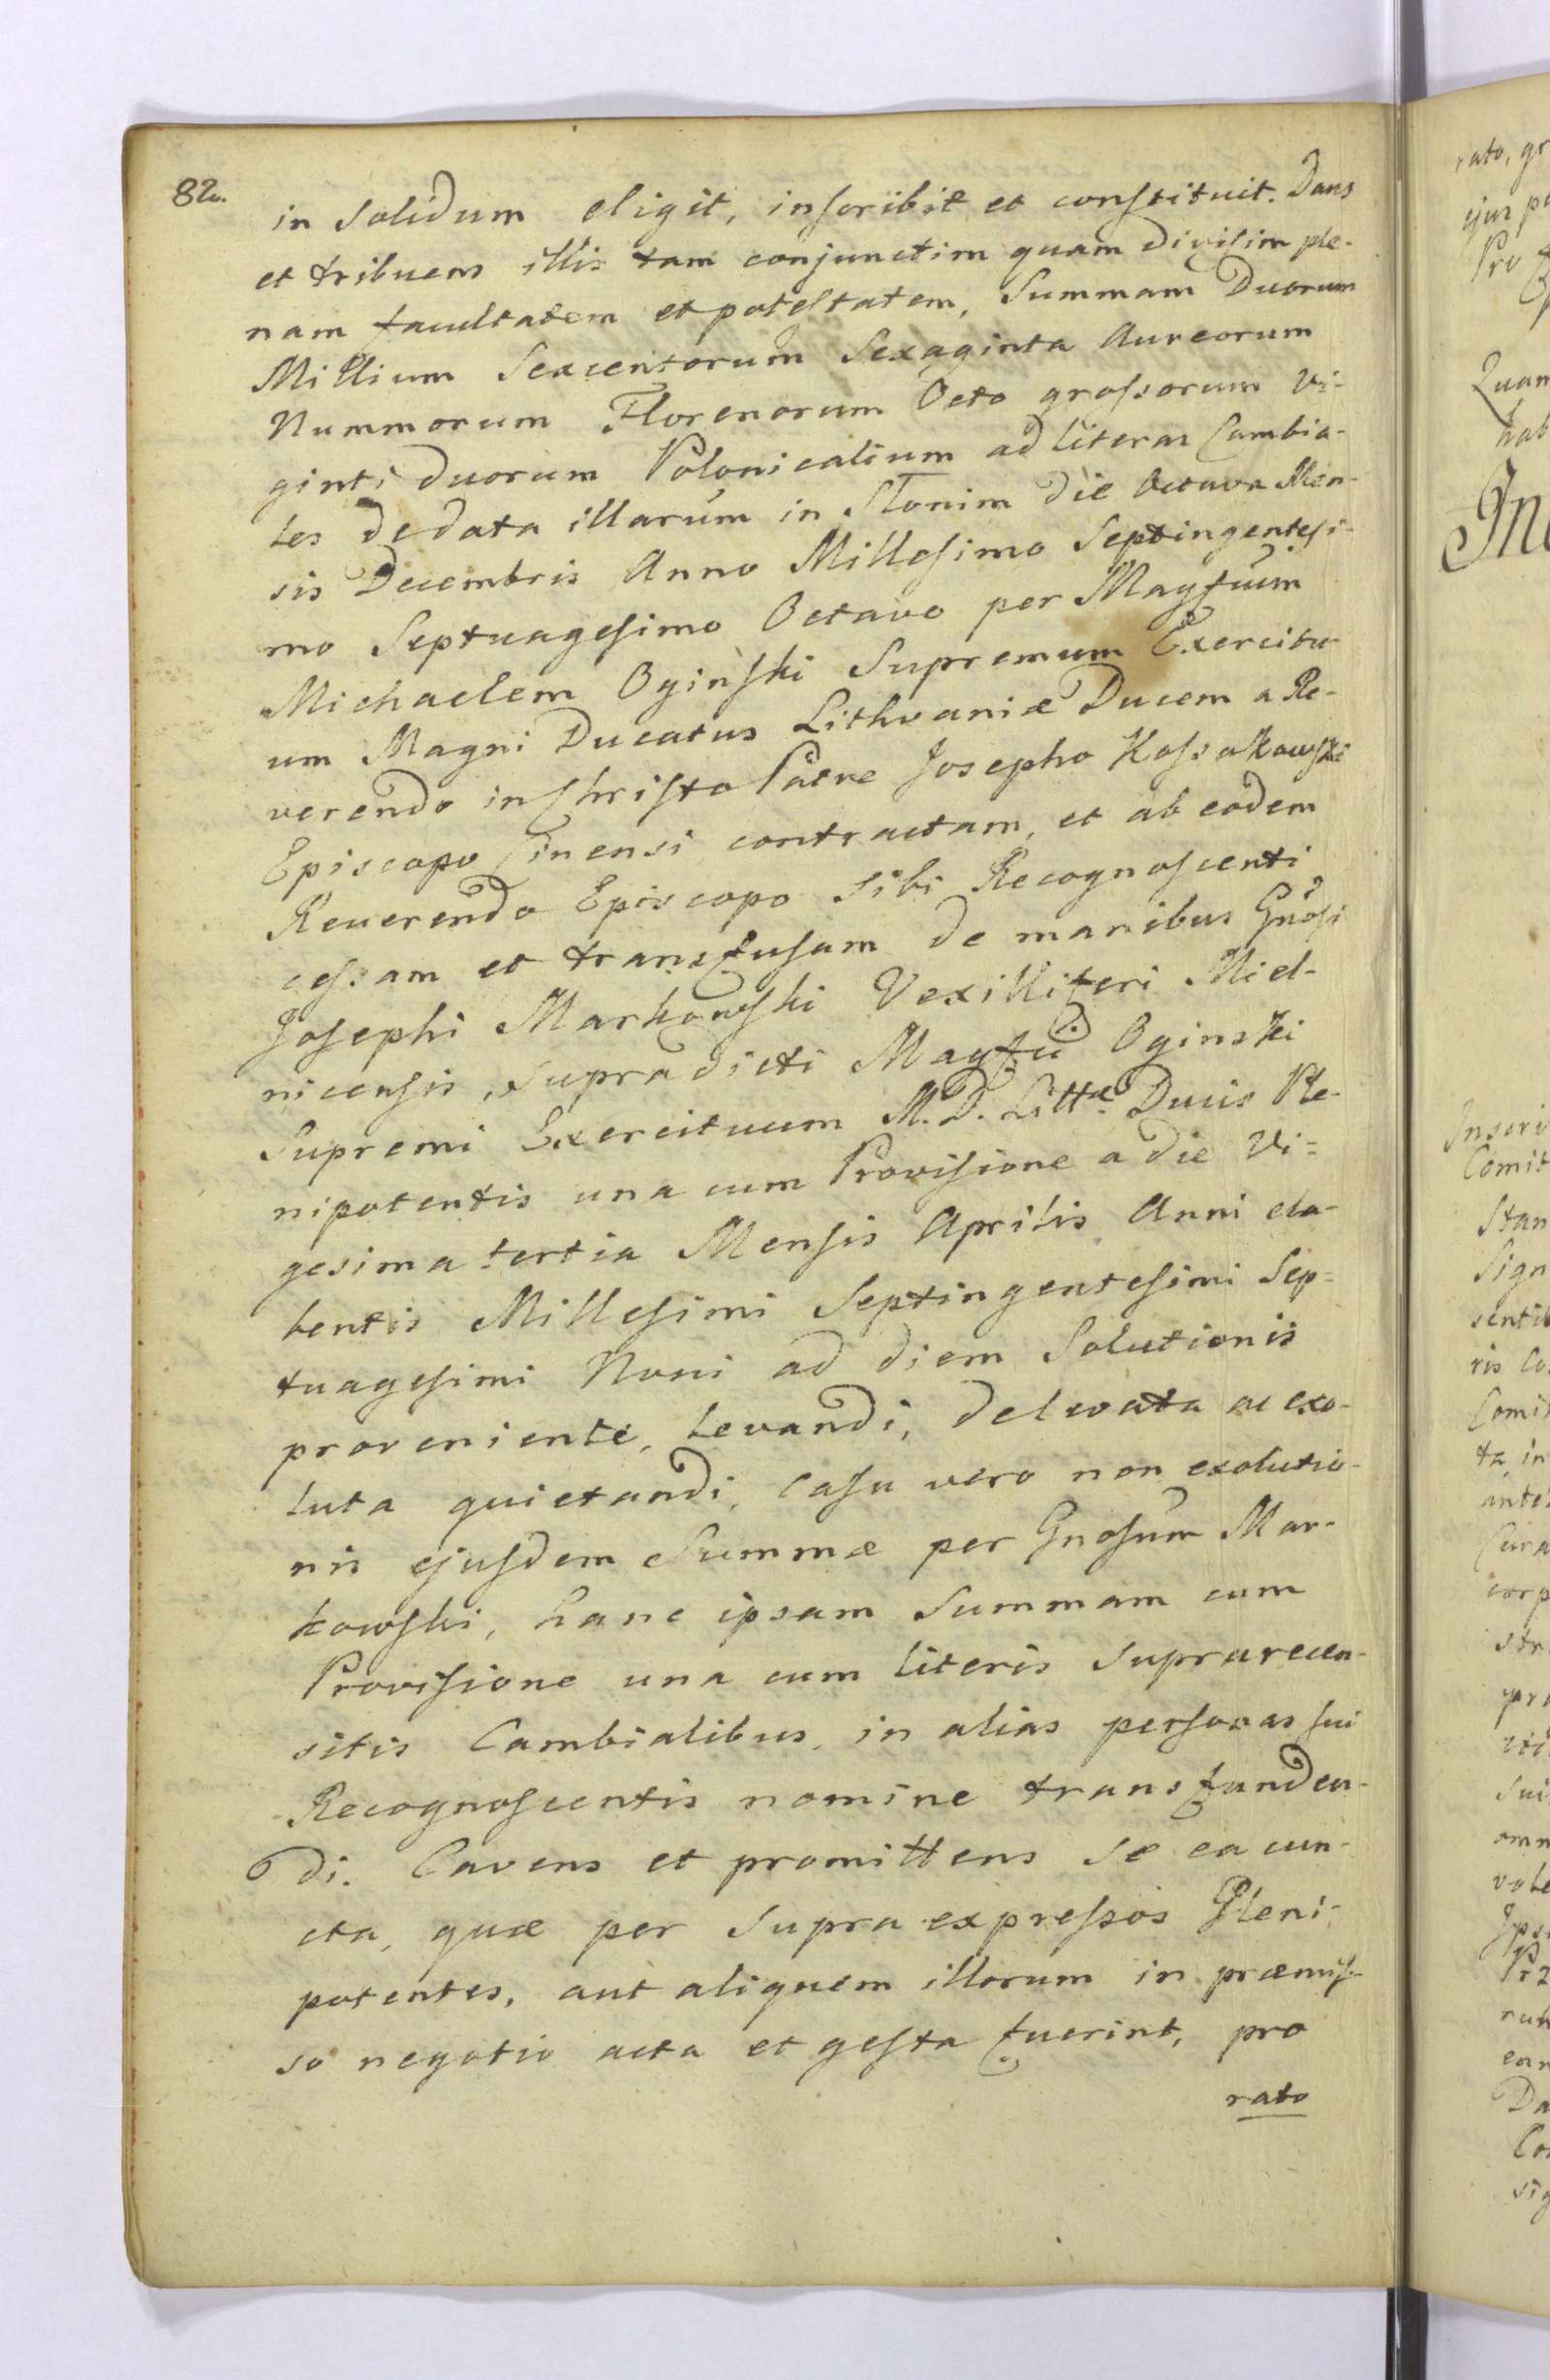 82.
in Solidum eligit, inscribit et constituit. Dans
et tribuens illis tam conjunctim quam divisim ple-
nam facultatem et potestatem, Summam Duorum
Millium Sexcentorum Sexaginta Aureorum
Nummorum Florenorum Octo grossorum Vi-
ginti duorum Polonicalium ad literas Cambia-
les de data illarum in Słonim die Octava Men-
sis Decembris Anno Millesimo Septingentesi-
mo Septuagesimo Octavo per Magfcum
Michaelem Oginski Supremum Exercitu-
um Magni Ducatus Lithvaniæ Ducem a Re-
verendo in Christo Patre Josepho Kossakowski
Episcopo Cinensi contractam, et ab eodem
Reverendo Episcopo sibi Recognoscenti
cessam et transfusam de manibus Gnosi
Josephi Markowski Vexilliferi Miel-
nicensis, supradicti Magfci Oginski
Supremi Exercituum M. D. Litt. Ducis Ple-
nipotentis una cum Provisione a die Vi-
gesima tertia Mensis Aprilis Anni ela-
bentis Millesimi Septingentesimi Sep-
tuagesimi Noni ad diem Solutionis
proveniente, levandi, delevata ac exo-
luta quietandi, Casu vero non exolutio-
nis ejusdem Summæ per Gnosum Mar-
kowski, hanc ipsam Summam cum
Provisione una cum literis suprarecen-
sitis Cambialibus in alias personas sui
Recognoscentis nomine transfunden-
di. Cavens et promittens se ea cun-
cta, quæ per supra expressos Pleni-
potentes, aut aliquem illorum in præmis-
so negotio acta et gesta fuerint, pro
rato